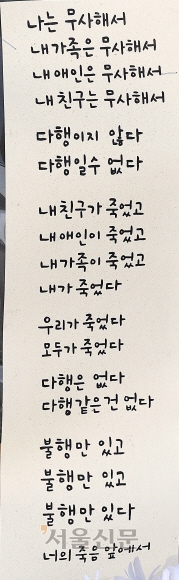 나는 무사해서
내 가족은 무사해서
내 애인은 무사해서
내 친구는 무사해서
다행이지 않다
다행일수 없다
내 친구가 죽었고
내 애인이 죽었고
내 가족이 죽었고
내가 죽었다
우리가 죽었다
모두가 죽었다
다행은 없다
다행같은건 없다
불행만 있고
불행만 있고
불행만 있다
서울신문
너의 죽음 앞에서